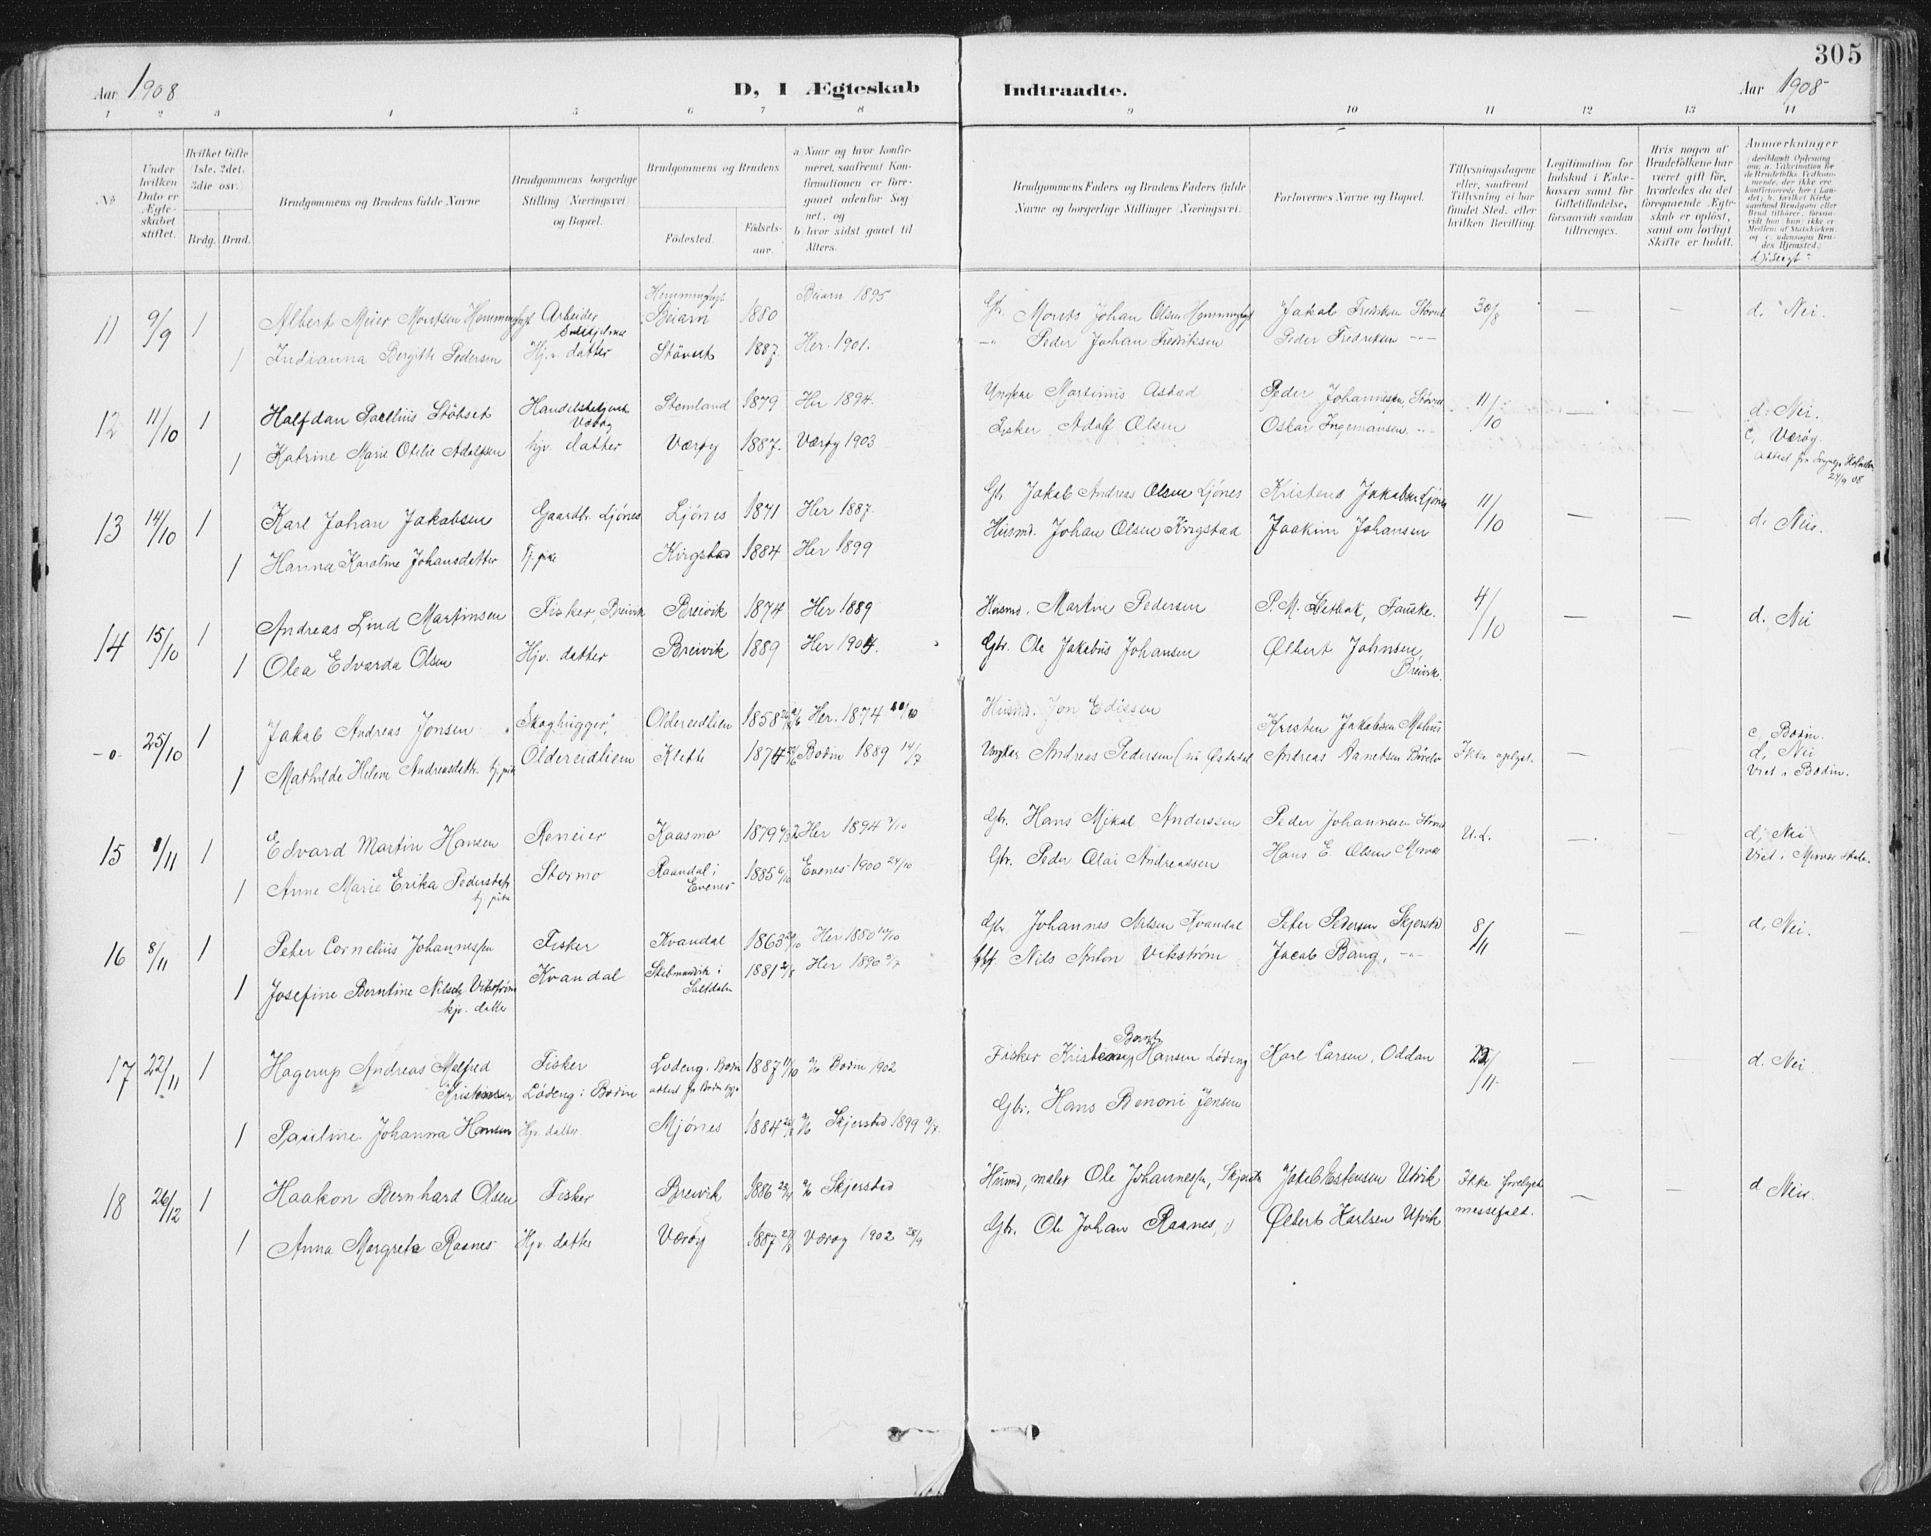 305
Aar 1908
D, I Ægteskab Indtraadte.
Aar 1908
1 2 3 4 5 6 7 8 9 10 11 12 13 14
No
Under hvilken Dato er Ægteskabet stiftet.
Hvilket Gifte 1ste. 2det. 3die osv.
Brdg. Brud.
Brudgommens og Brudens fulde Navne
Brudgommens borgerlige Stilling (Næringsvei) og Bopæl.
Brudgommens og Brudens
Fødested.
Fødselsaar.
a Naar og hvor konfirmeret, saafremt Konfirmationen er foregaaet udenfor Sognet, og
b hvor sidst gaaet til Alters.
Brudgommens Faders og Brudens Faders fulde Navne og borgerlige Stillinger (Næringsvei).
Forlovernes Navne og Bopæl.
Tillysningsdagene eller, saafremt Tillysning ei har fundet Sted, efter hvilken Bevilling.
Legitimation for Indskud i Enkekassen samt for Giftetilladelse, forsaavidt saadan tiltrænges.
Hvis nogen af Brudefolkene har været gift før, hvorledes da det foregaaende Ægteskab er opløst, samt om lovligt Skifte er holdt.
Anmerkninger
11 9/9 1 Albert Meier Moritsen Hemminghyt Arbeider Hemminghyt Buarn 1880 Buarn 1895 Gb. Morits Johan Olsen Hemminghyt Jakob Fredriksen Støvset 30/8 — — d. Nei.
1 Indianna Bergith Pedersen Hjv. datter Støvset 1887. Her. 1901. -"- Peder Johan Fredriksen Peder Fredriksen -"-
12 11/10 1 Halfdan Paellius Støbset Handelsbetjent Værøy Stemland 1879 Her 1894. Ungkar Martinus Astad Peder Johannesen, Støvset 11/10 — — d. Nei.
1 Katrine Marie Otilie Adolfsen hjv. datter Værøy 1887. Værøy 1903 Fisker Adolf Olsen Oskar Ingemansen -"- c, Værøy.
13 14/10 1 Karl Johan Jakobsen Gaardb. Ljønes Ljønes 1871 Her 1887. Gb. Jakob Andreas Olsen Ljønes Kristens Jakobsen Ljønes 11/10 — — d. Nei.
1 Hanna Karoline Johansdatter tj. pike Kirgstad 1884 Her 1899 Husmd. Johan Olsen Kirgstad Joakim Johansen
14 15/10 1 Andreas Lind Martinsen Fisker, Breivik Breivik 1874 Her 1889 Husmd. Martin Pedersen P. M. Setbak, Fauske. 4/10 — — d. Nei
1 Olea Edvarda Olsen Hjv. datter Breivik 1889 Her 1904. Gbr. Ole Jakobus Johansen Ølbert Johnsen, Breivik.
-o- 25/10 1 Jakob Andreas Jonsen Skoghugger, Oldereidlien 1858 Her. 1874 Husmd. Jon Edissen Kristen Jakobsen c. Bodin.
1 Mathilde Helene Andreasdatr. tj. pike Oldereidlien Klette 1874 Bodin 1889 14/7 Ungkar Andreas Pedersen Andreas Ikke oplyst. — — d, Nei
Viet i Bodin.
15 1/11 1 Edvard Martin Hansen Reneier Kaasmo 1879 Her 1894 Gbr. Hans Mikal Anderssen Peder Johannesen U.L. — — d, Nei
1 Anne Marie Erika Pedersdatr. tj. pike Stormo Raandal i Evenes 1885 Evenes 1900 24/10 Gbr. Peder Olai Andreassen Hans E. Olsen Misvær Viet i Misvær skole.
16 8/11 1 Peter Cornelius Johannesen Fisker Kvandal 1863 Her 1880 Gbr. Johannes Nilsen Kvandal Peter Pedersen Skjerstad 8/11 — — d, Nei.
1 Josefine Berntine Nilsdtr. Vikstrøm hjv. datter Kvandal i Saltdalen 1881 Her 1896 Nils Anton Vikstrøm Jacob Bang, -"-
17 22/11 1 Hagerup Andreas Alfred Kristensen Fisker Lødeng i Bodin Lødeng, Bodin 1887 Bodin 1902 Fisker Kristian Bernt Hansen Løding Karl Larsen, Oddan 22/11. d. Nei.
1 Pauline Johanna Hansen Hjv. datter Mjønes 1884 Skjerstad 1899 Gbr. Hans Benoni Jensen
18 26/12 1 Haakon Bernhard Olsen Fisker Breivik 1886 Skjerstad Husmd, maler Ole Johannessen, Skjerstad Jakob Estensen Utvik Ikke forelyst messefald. — — d Nei.
1 Anna Margrete Raanes Hjv. datter Værøy 1887 Værøy 1902 28/9 Gbr. Ole Johan Raanes, Ølbert Karlsen Utvik